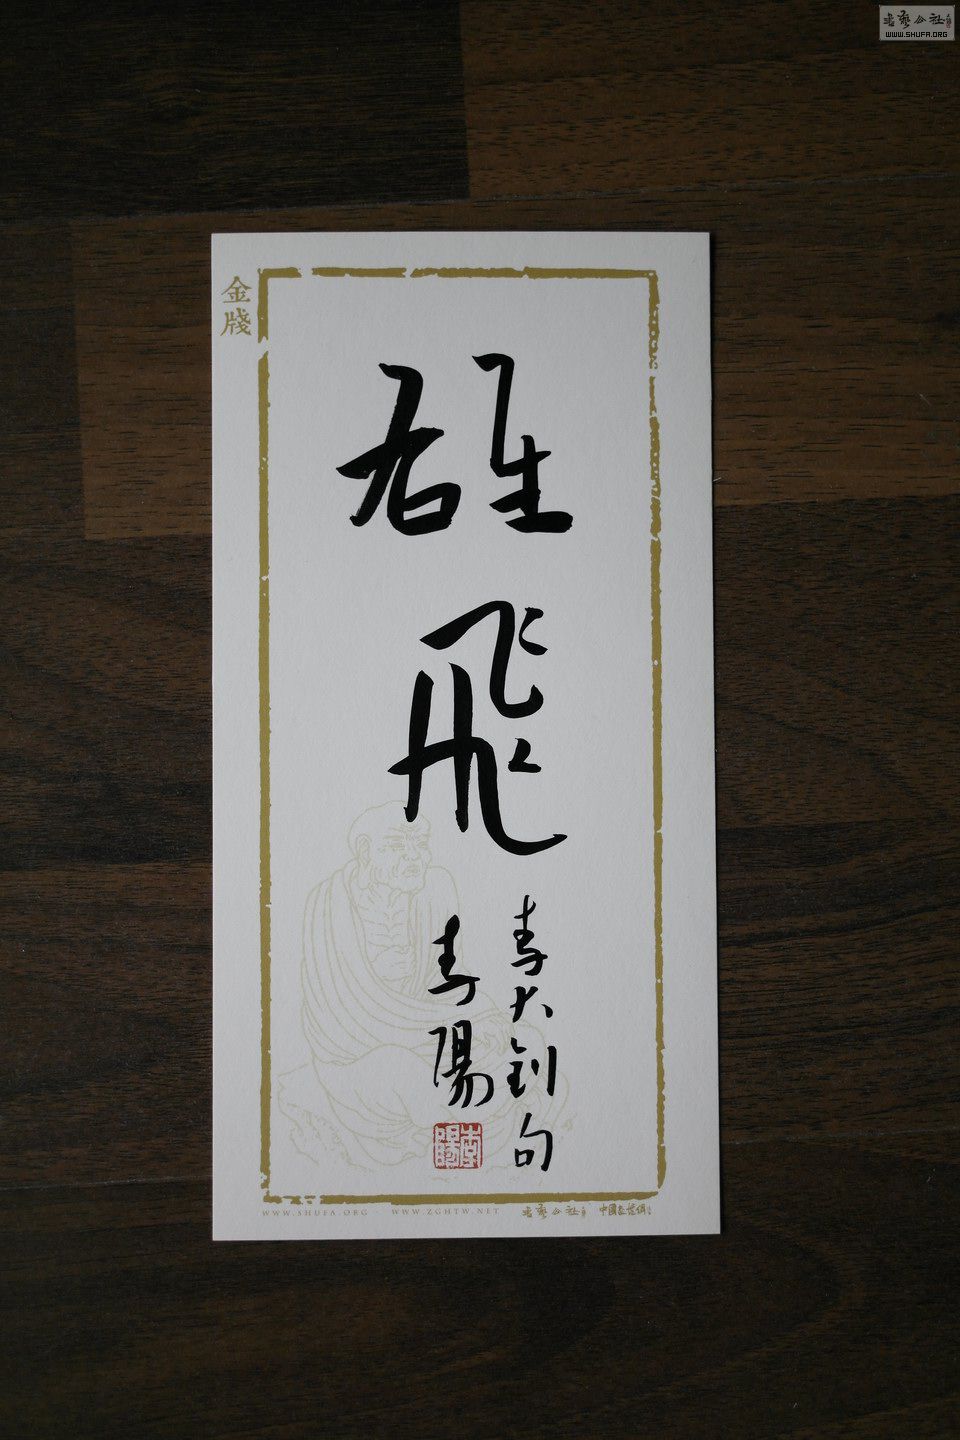 書藝公社
WWW.SHUFA.ORG
金牋
雄
飛
李大釗句
李陽
李陽
WWW.SHUFA.ORG
WWW.ZGHTW.NET
書藝公社